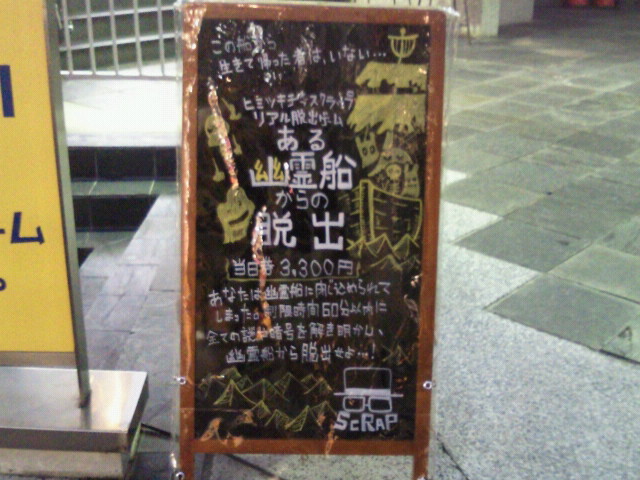 この船から
生きて帰った者は、いない…
ヒミツキチオブスクラップ
リアル脱出ゲーム
ある
幽霊船
からの
脱出
当日券 3,300円
あなたは幽霊船に閉じ込められて
しまった。制限時間60分以内に
全ての謎や暗号を解き明かし、
幽霊船から脱出せよ…!
SCRAP
ーム